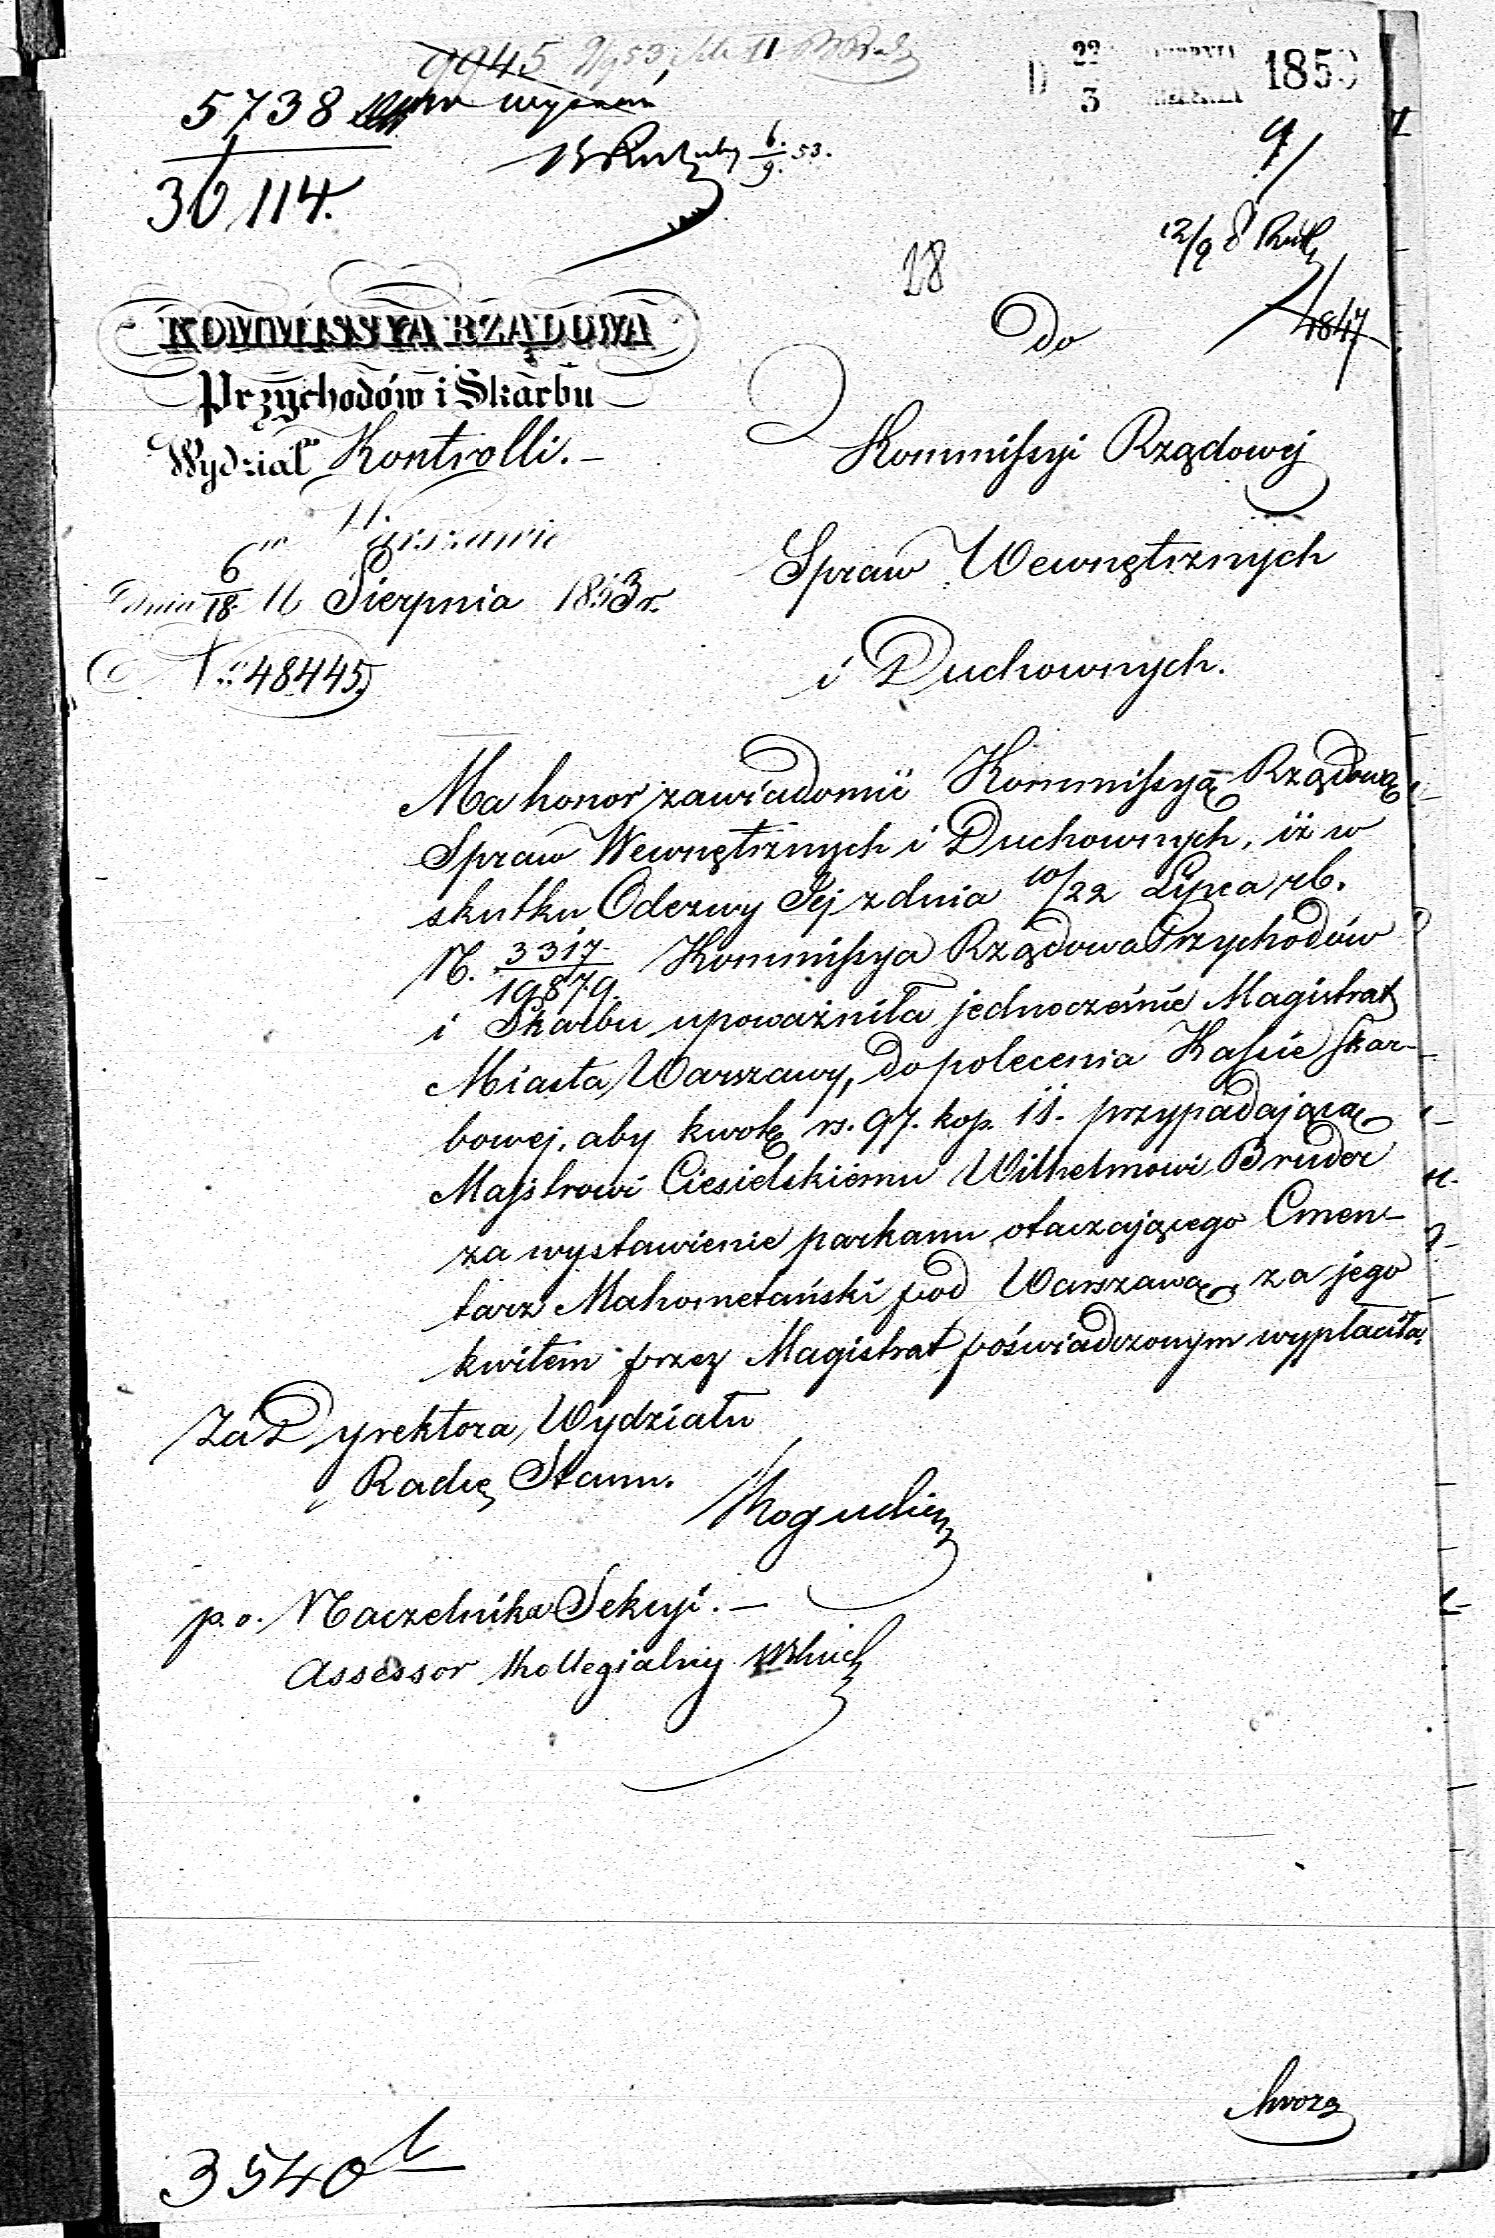 9945
5738
30114.
6/9 53.
D 22 SIERPNIA 1853
3
9/
12/9
4847
28
KOMMISSYA RZĄDOWA
Przychodów i Skarbu
Wydział Kontrolli. –
w Warszawie
dnia 6/18 Sierpnia 1853 r.
N. 48445.
Do
Kommissyi Rządowej
Spraw Wewnętrznych
i Duchownych.
Ma honor zawiadomić Kommissyą Rządową
Spraw Wewnętrznych i Duchownych, iż w
skutku Odezwy Jej z dnia 10/22 Lipca rb.
N. 3317/19879. Kommissya Rządowa Przychodów
i Skarbu upoważniła jednocześnie Magistrat
Miasta Warszawy, do polecenia Kassie Skar-
bowej, aby kwotę rs. 97. kop. 11. przypadającą
Majstrowi Ciesielskiemu Wilhelmowi Bruder
za wystawienie parkanu otaczającego Cmen-
tarz Mahometański pod Warszawą, za jego
kwitem przez Magistrat poświadczonym wypłaciła.
Za Dyrektora Wydziału
Radzca Stanu.
p. o. Naczelnika Sekcyi. –
Assessor Kollegialny
3540